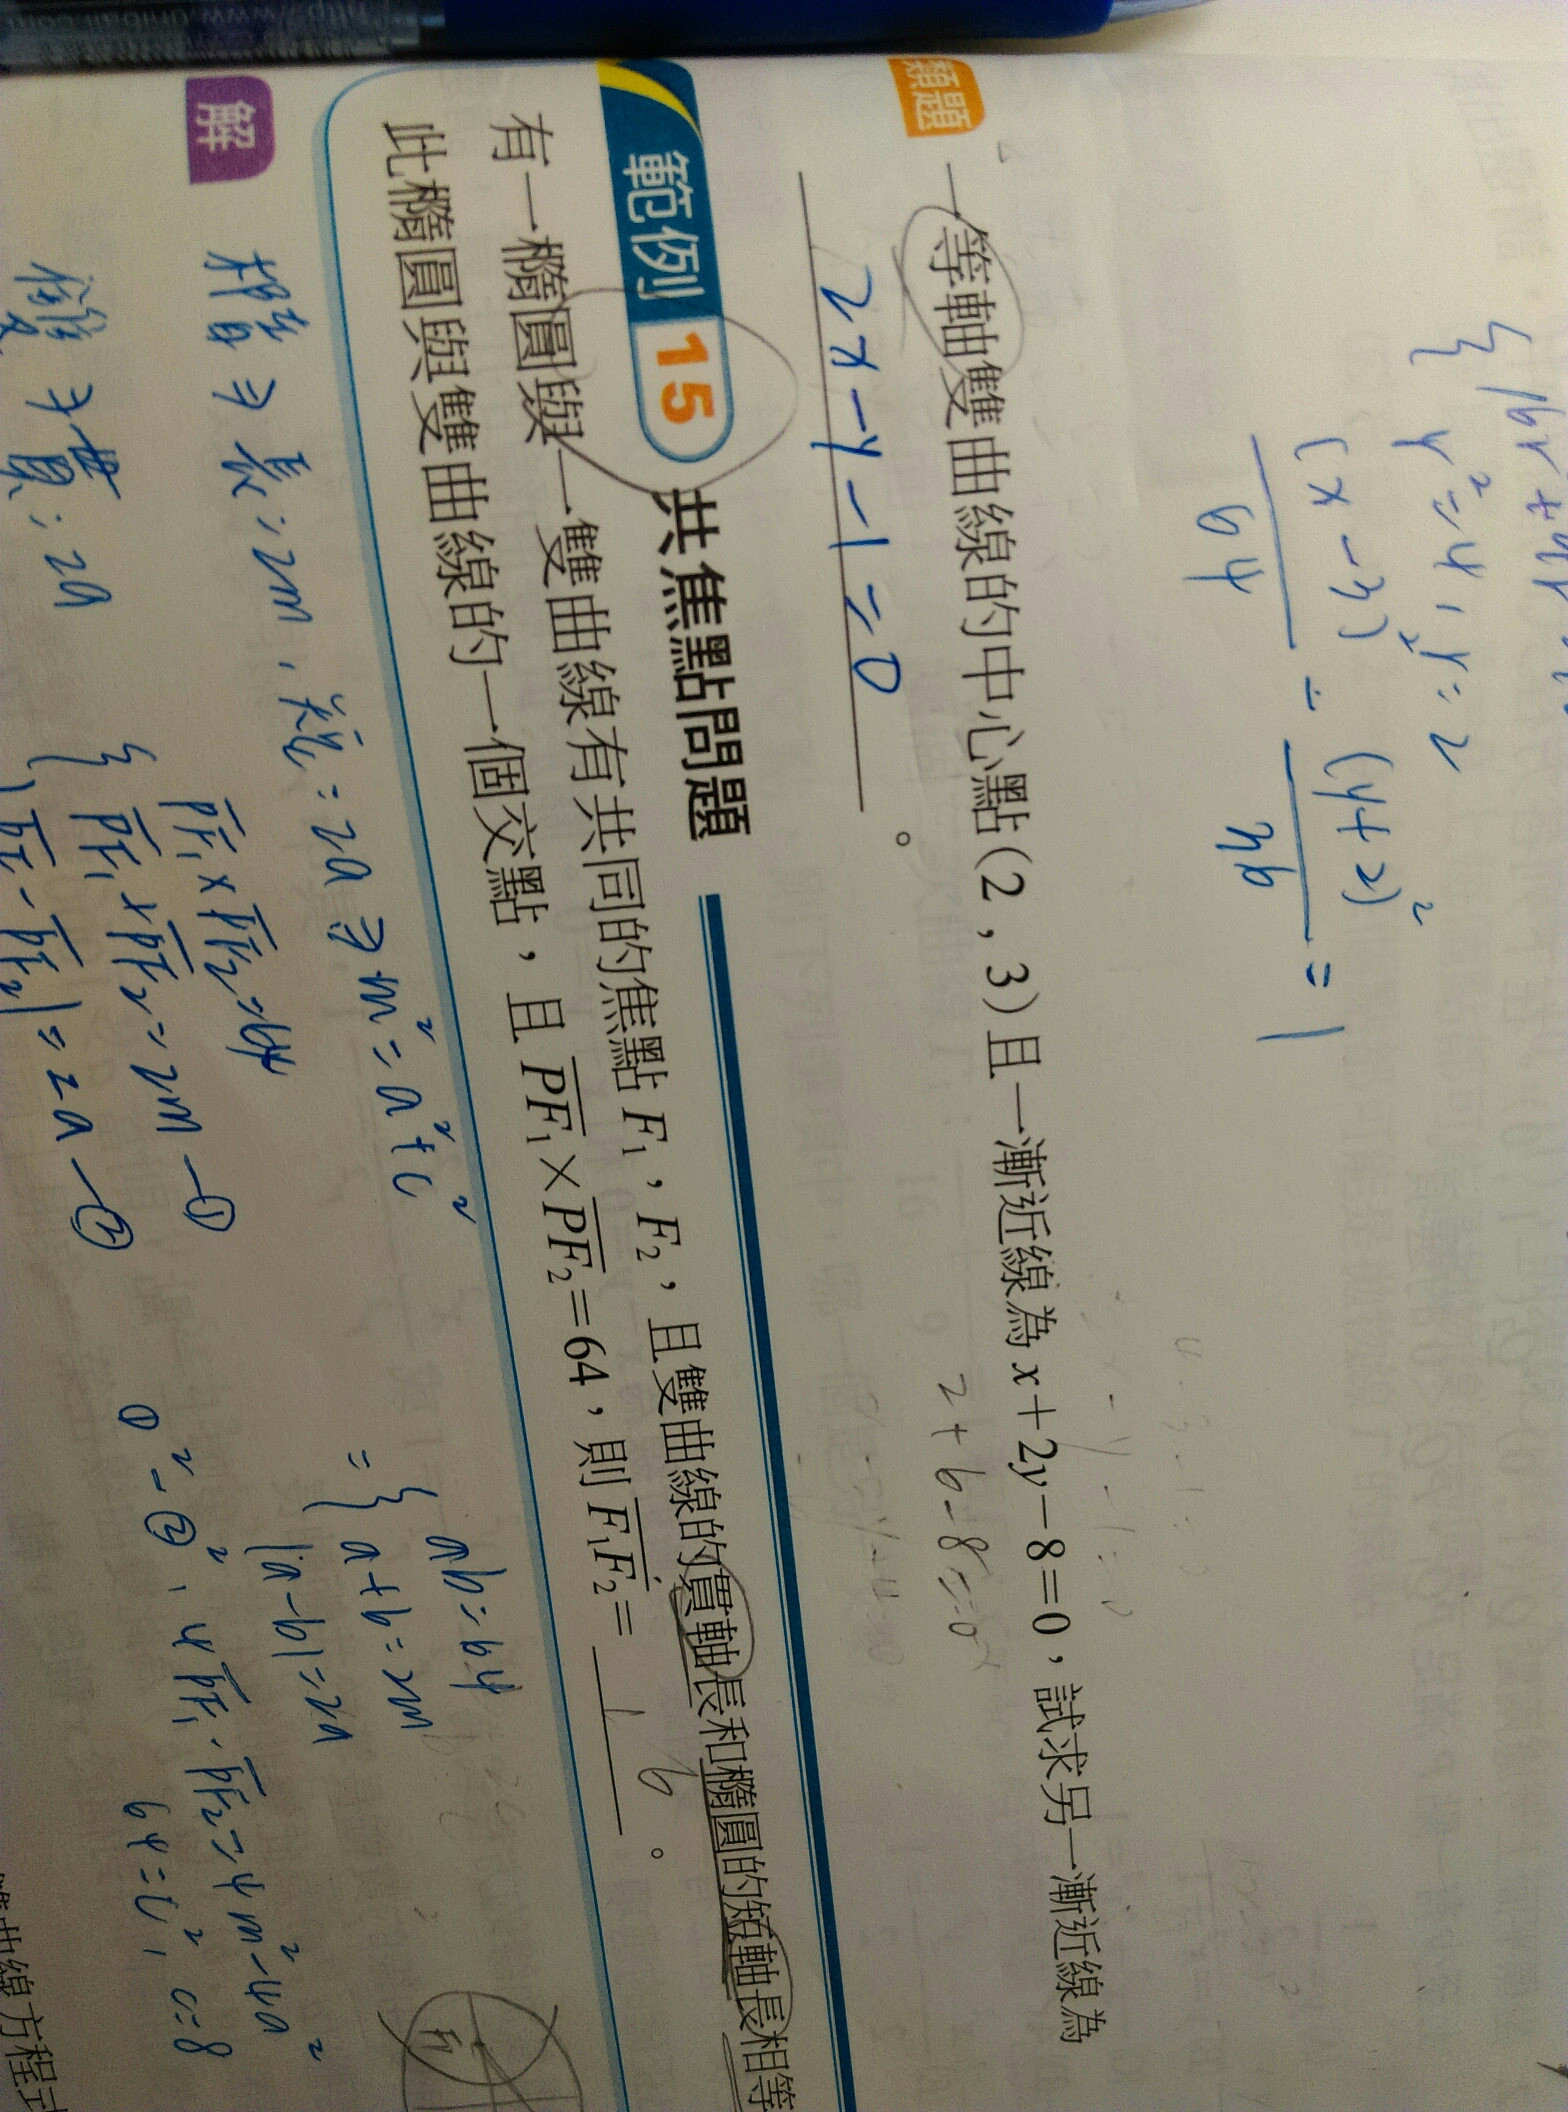 y²=4,y=2
(x-3) - (y+2)² = 1
64 36
類題 一等軸雙曲線的中心點(2,3)且一漸近線為x+2y-8=0,試求另一漸近線為
2x-y-1=0。
2+6-8=0
範例 15 共焦點問題
有一橢圓與一雙曲線有共同的焦點F₁,F₂,且雙曲線的貫軸長和橢圓的短軸長相等
此橢圓與雙曲線的一個交點,且PF₁×PF₂=64,則F₁F₂= 16 。
解
長:2m,短:2a⇒m²=a²+c²
雙⇒貫:2a
PF₁×PF₂=64
PF₁+PF₂=2m-①
|PF₁-PF₂|=2a-②
ab=64
={a+b=2m
|a-b|=2a
①²-②²,4PF₁·PF₂=4m²-4a²
64=c²,c=8
曲線方程式